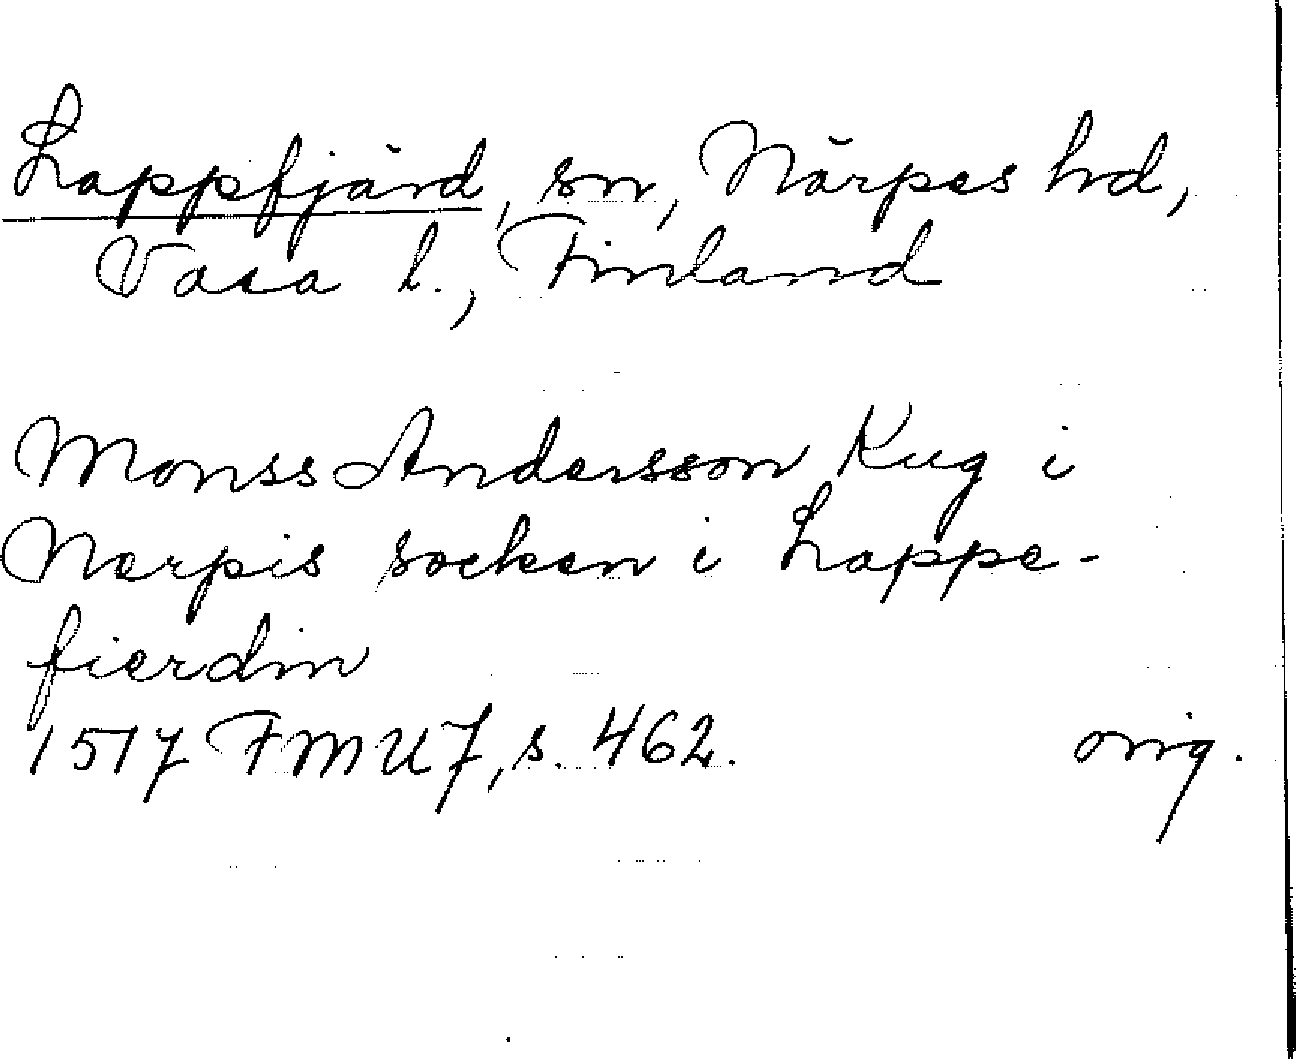 Lappfjärd, sn, Närpes hd,
Vasa l., Finland
Monss Andersson Kug i
Nerpis socken i Lappe-
fierdin
1517 FMU 7, s. 462. orig.